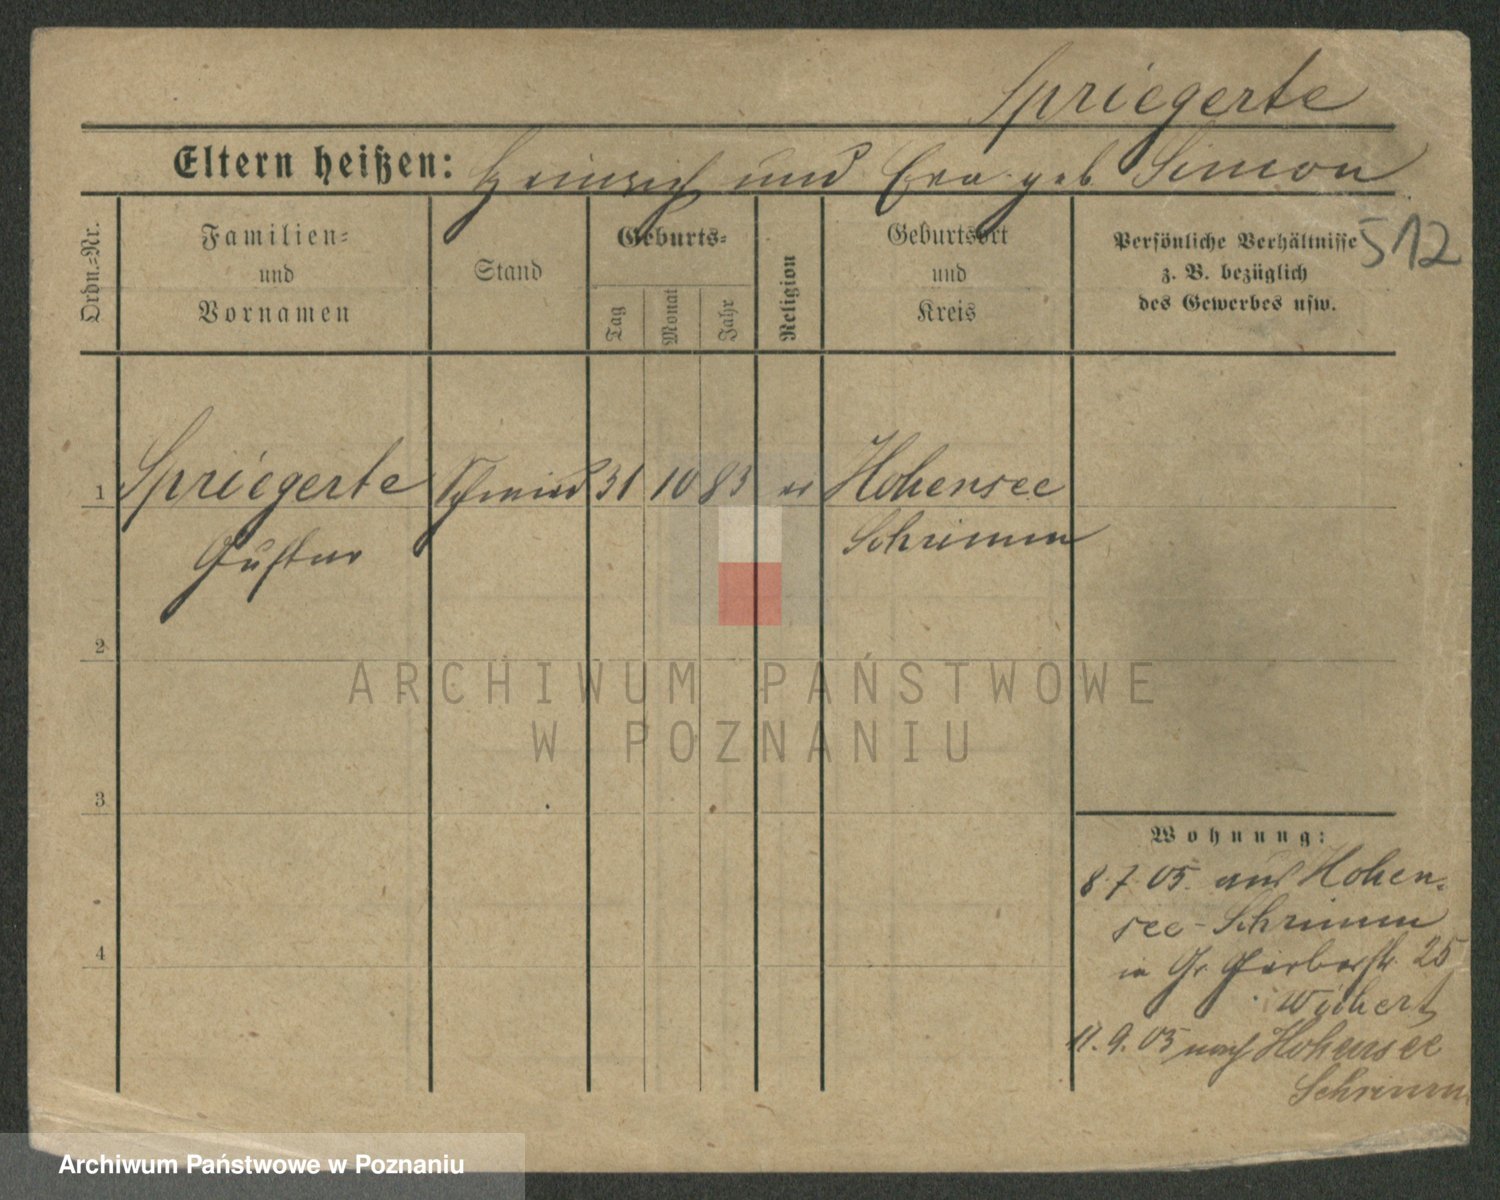 Spriegerte
Eltern heißen: Heinrich und Eva geb Simon
512
Ordn.=Nr.
Familien=
und
Vornamen
Stand
Geburts=
Tag
Monat
Jahr
Religion
Geburtsort
und
Kreis
Persönliche Verhältnisse
z. B. bezüglich
des Gewerbes usw.
1 Spriegerte Schmied 31 10 83 ev Hohensee
Gustav Schrimm
2
3
4
Wohnung:
8.7.05. aus Hohen-
see-Schrimm
in Gr. Gerberstr. 25
Wichert
11.9.05 nach Hohensee
Schrimm
ARCHIWUM PAŃSTWOWE
W POZNANIU
Archiwum Państwowe w Poznaniu